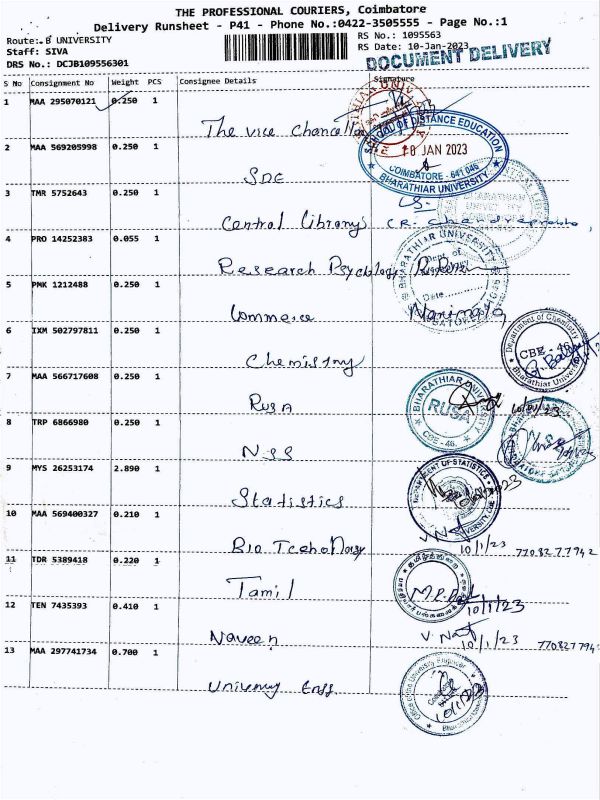 THE PROFESSIONAL COURIERS, Coimbatore
Delivery Runsheet - P41 - Phone No.:0422-3505555 - Page No.:1
Route:.B UNIVERSITY
Staff: SIVA
DRS No.: DCJB109556301
RS No.: 1095563
RS Date: 10-Jan-2023
DOCUMENT DELIVERY
S No Consignment No Weight PCS Consignee Details Signature
1 MAA 295070121 0.250 1
The vice Chancellor
SCHOOL OF DISTANCE EDUCATION
10 JAN 2023
COIMBATORE - 641 046
BHARATHIAR UNIVERSITY
2 MAA 569205998 0.250 1
SDE
3 TMR 5752643 0.250 1
Central Library
4 PRO 14252383 0.055 1
Research Psychology
BHARATHIAR UNIVERSITY
Date
5 PMK 1212488 0.250 1
Commerce
6 IXM 502797811 0.250 1
Chemistry
Department of Chemistry
CBE - 46
Bharathiar University
7 MAA 566717608 0.250 1
RUSA
BHARATHIAR UNIVERSITY
RUSA
CBE - 46.
10/01/23
8 TRP 6866980 0.250 1
NSS
9 MYS 26253174 2.890 1
Statistics
DEPARTMENT OF STATISTICS
10 MAA 569400327 0.210 1
Bio Technology
10/1/23 7708277942
11 TDR 5389418 0.220 1
Tamil
10/1/23
12 TEN 7435393 0.410 1
Naveen
10/1/23
13 MAA 297741734 0.700 1
University Engg
Office of the University Engineer
10/1/23